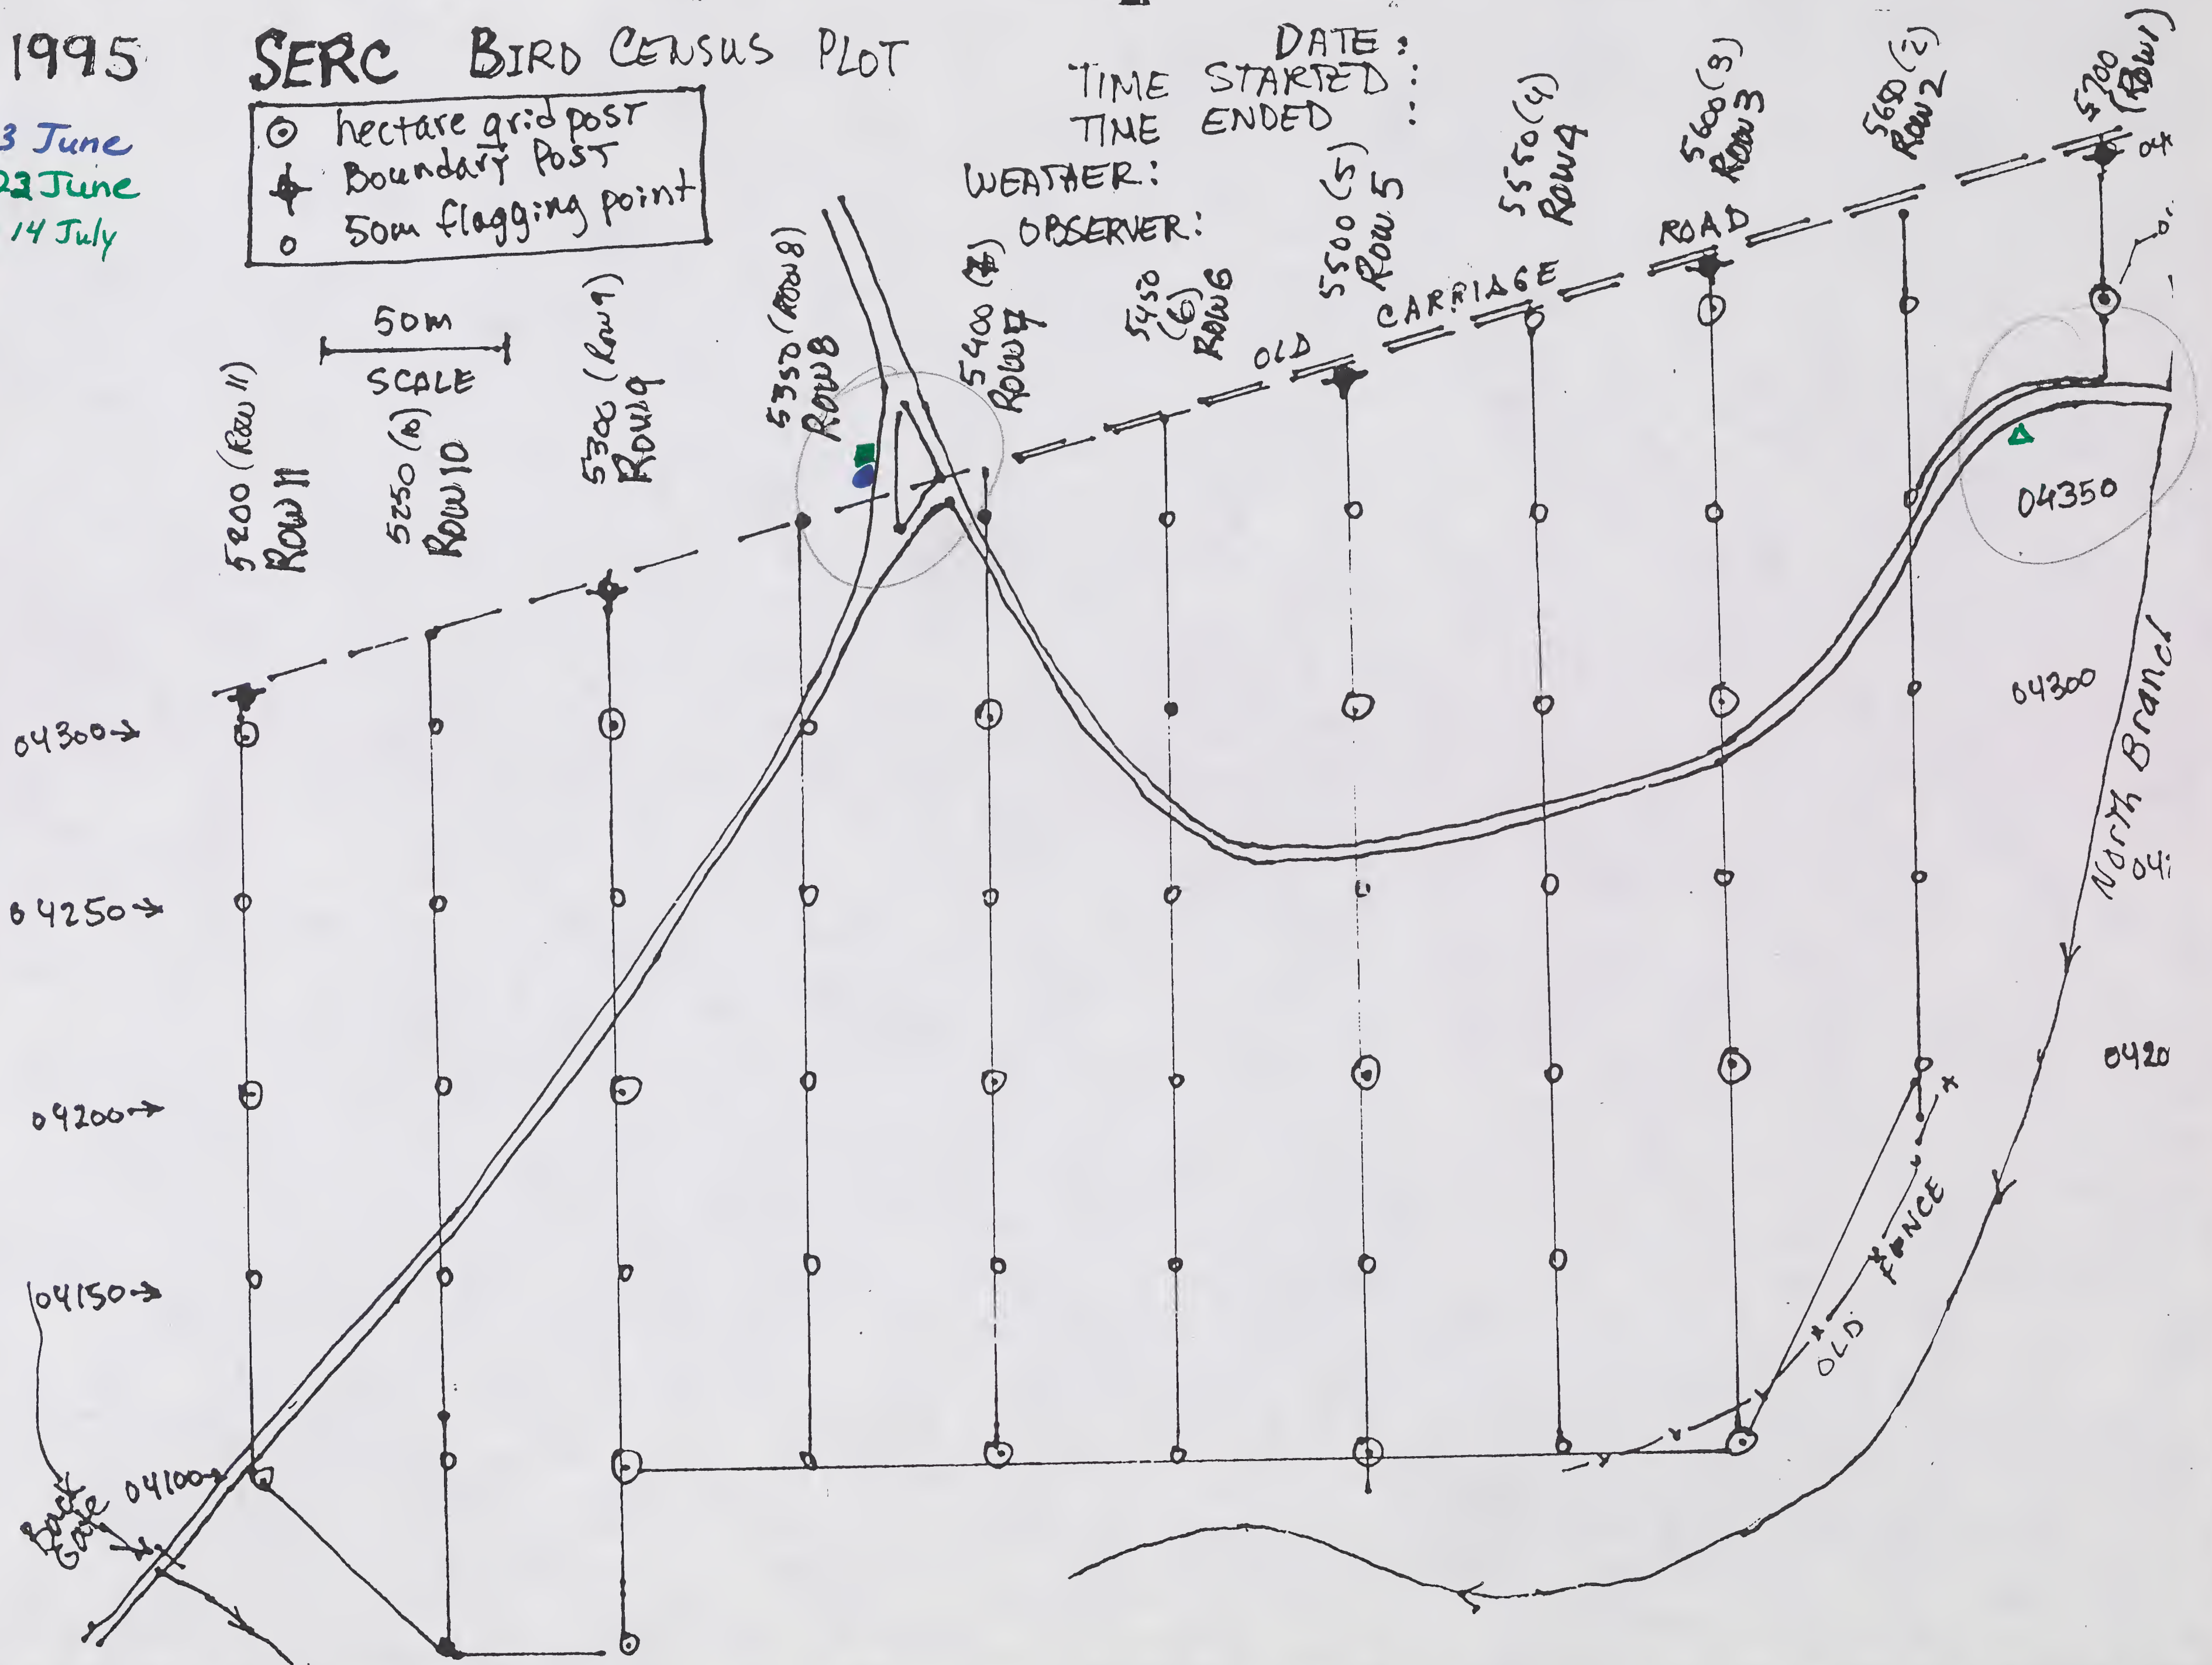 1995
SERC BIRD CENSUS PLOT
3 June
22 June
14 July
hectare grid post
Boundary Post
50m flagging point
DATE :
TIME STARTED :
TIME ENDED :
WEATHER:
OBSERVER:
50m
SCALE
5200 (Row 11)
ROW 11
5250 (10)
ROW 10
5300 (Row 9)
ROW 9
5350 (ROW 8)
ROW 8
5400 (7)
ROW 7
5450
(6)
ROW 6
5500 (5)
ROW 5
5550 (4)
ROW 4
5600 (3)
ROW 3
5650 (2)
ROW 2
5700
(ROW 1)
OLD CARRIAGE ROAD
04350
04300→
04300
North Branch
04250→
04200→
0420
04150→
04100→
Back
Gate
OLD FENCE